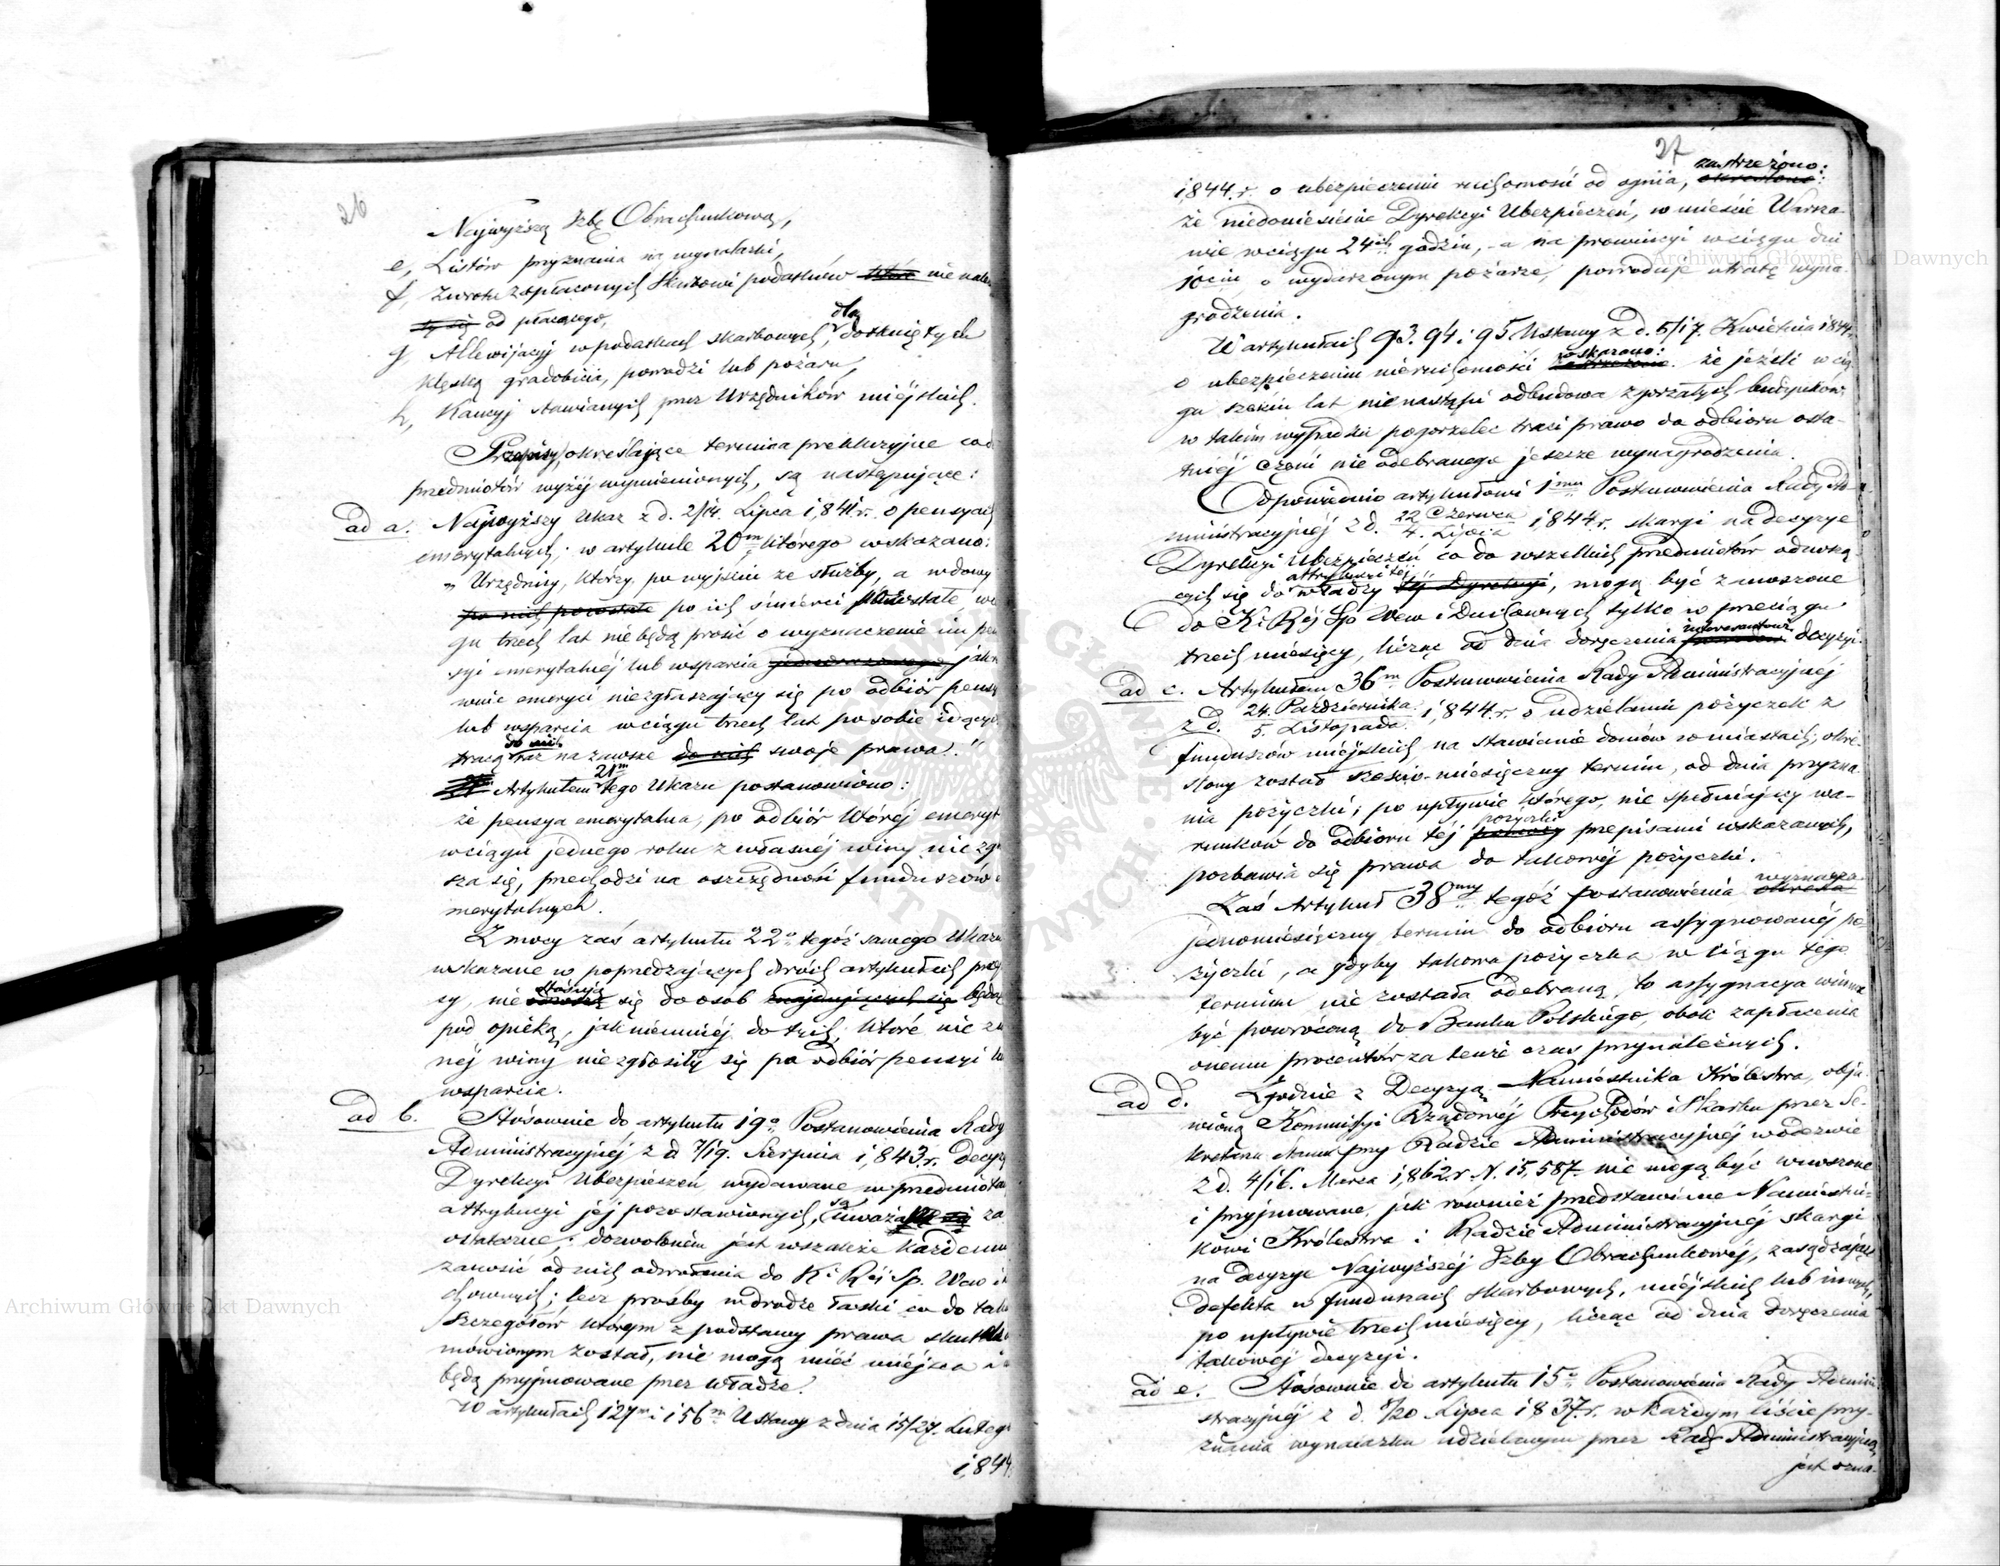 26
Najwyższą Izbę Obrachunkową,
e, Listów przyznania na wynalazki,
f, Zwrotu zapłaconych Skarbowi podatków które nie nale
ży się od płacącego,
g Allewijacyj w podatkach skarbowych, dla dotkniętych
klęską gradobicia, powodzi lub pożaru,
h, Kaucyj stawianych przez Urzędników miejskich.
Przepisy, określające termina prekluzyjne co do
przedmiotów wyżej wymienionych, są następujące:
ad a. Najwyższy Ukaz z d. 2/14. Lipca 1,841.r. o pensyach
emerytalnych; w artykule 20m którego wskazano:
„ Urzędnicy, którzy, po wyjściu ze służby, a wdowy
po nich pozostałe po ich śmierci pozostałe, w cią
gu trzech lat nie będą prosić o wyznaczenie im pen
syi emerytalnej lub wsparcia jednorazowego jako
wnie emeryci niezgłaszający się po odbiór pensyi
lub wsparcia w ciągu trzech lat po sobie idących
tracą do nich na zawsze do nich swoje prawa."
Artykułem 21m tego Ukazu postanowiono:
że pensya emerytalna, po odbiór której emeryt
w ciągu jednego roku z własnej winy nie zgł
sza się, przechodzi na oszczędność funduszów e
merytalnych.
Z mocy zaś artykułu 22o tegóż samego Ukazu
wskazane w poprzedzających dwóch artykułach przepi
sy, nie stosują się do osób znajdujących się będąc
pod opieką, jak niemniej do tych, które nie z w
nej winy niezgłosiły się po odbiór pensyi lub
wsparcia.
ad b. Stósownie do artykułu 19o Postanowienia Rady
Administracyjnej z d 7/19. Sierpnia 1,843.r. decyzye
Dyrekcyi Ubezpieczeń wydawane w przedmiotach
attrybucyi jej pozostawionych, są uważa się za
ostateczne; dozwolonem jest wszakże każdemu
zanosić od nich odwołania do K. Rej Sp. Wew i D
chownych; lecz prośby w drodze łaski co do takich
szczegółów którym z podstawy prawa skutek od
mówionym został, nie mogą mieć miejsca i nie
będą przyjmowane przez władze.
W artykułach 127m i 156m Ustawy z dnia 15/27. Lutego
1,844.
27
1,844.r. o ubezpieczeniu ruchomości od ognia, zastrzeżono: określono:
że niedoniesienie Dyrekcyi Ubezpieczeń, w mieście Warsza-
wie w ciągu 24ch godzin, a na prowincyi w ciągu dni
o wydarzonym pożarze, powoduje utratę wyna-
grodzenia.
W artykułach 93. 94 i 95 Ustawy z d. 5/17. Kwietnia 1844.r
o ubezpieczeniu nieruchomości wskazano: zastrzeżono. że jeżeli w cią
gu sześciu lat nie nastąpi odbudowa zgorzałych budynków
w takim wypadku pogorzelec traci prawo do odbioru osta-
tniej części nie odebranego jeszcze wynagrodzenia.
Odpowiednio artykułowi 1mu Postanowienia Rady Ad-
ministracyjnej z d. 22 Czerwca / 4. Lipca 1,844.r. skargi na decyzye
Dyrekcyi Ubezpieczeń co do wszelkich przedmiotów odnoszą
cych się do attrybucyi tej władzy tej Dyrekcyi, mogą być zanoszone
do K. Rej Sp Wew i Duchownych tylko w przeciągu
trzech miesięcy, licząc od dnia doręczenia interesantowi decyzyi.
ad c. Artykułem 36m Postanowienia Rady Administracyjnej
z d. 24. Października / 5. Listopada 1,844.r. o udzielaniu pożyczek z
funduszów miejskich na stawianie domów w miastach, okre-
ślony został sześcio-miesięczny termin, od dnia przyzna-
nia pożyczki, po upływie którego, nie spełniający wa-
runków do odbioru tej pożyczki pomocy przepisami wskazanych,
pozbawia się prawa do takowej pożyczki.
Zaś Artykuł 38my tegóż postanowienia wyznacza określa
jednomiesięczny termin do odbioru assygnowanej po
życzki, a gdyby takowa pożyczka w ciągu tego
terminu nie została odebraną, to assygnacya winna
być powróconą do Banku Polskiego, obok zapłacenia
onemu procentów za tenże czas przynależnych.
ad d. Zgodnie z Decyzyą Namiestnika Królestwa, obja-
wioną Kommissyi Rządowej Przychodów i Skarbu przez Se-
kretarza Stanu przy Radzie Administracyjnej w odezwie
z d. 4/16. Marca 1,862.r. N. 15,587. nie mogą być wnoszone
i przyjmowane, jak również przedstawiane Namiestni-
kowi Królestwa i Radzie Administracyjnej skargi
na decyzye Najwyższej Izby Obrachunkowej, zasądzające
defekta w funduszach skarbowych, miejskich lub innych,
po upływie trzech miesięcy, licząc od dnia doręczenia
takowej decyzyi.
ad e. Stósownie do artykułu 15o Postanowienia Rady Admini-
stracyjnej z d. 8/20 Lipca 1837.r. w każdym liście przy-
znania wynalazku udzielonym przez Radę Administracyjną
jest ozna-
Archiwum Główne Akt Dawnych
Archiwum Główne Akt Dawnych